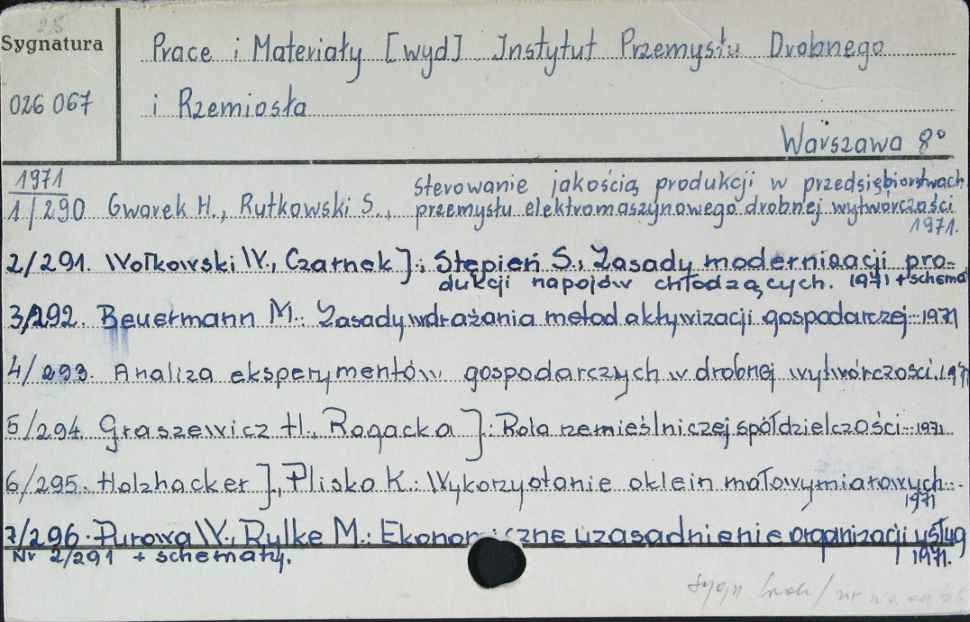 25
Sygnatura
026 067
Prace i Materiały [wyd] Instytut Przemysłu Drobnego
i Rzemiosła
Warszawa 8°
1971
1/290 Gwarek H., Rutkowski S., Sterowanie jakością produkcji w przedsiębiorstwach
przemysłu elektromaszynowego drobnej wytwórczości
1971.
2/291. Wołkowski W., Czarnek J.; Stępień S., Zasady modernizacji pro-
dukcji napojów chłodzących. 1971 + schema
3/292. Beuermann M.: Zasady wdrażania metod aktywizacji gospodarczej - 1971
4/293. Analiza eksperymentów gospodarczych w drobnej wytwórczości. 1971
5/294. Graszewicz H., Rogacka J.: Rola rzemieślniczej spółdzielczości - 1971
6/295. Holzhacker J., Pliska K.: Wykorzystanie oklein małowymiarowych -
1971
7/296. Purowa W., Rylke M.: Ekonomiczne uzasadnienie organizacji usług
1971.
Nr 2/291 + schematy.
sygn